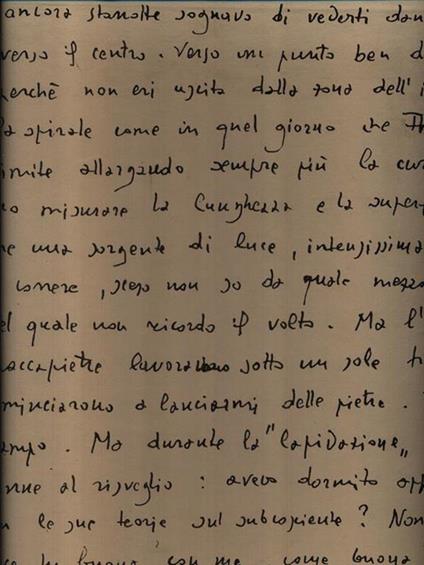 ancora stanotte sognavo di vederti dan
verso il centro. Verso un punto ben d
perchè non eri uscita dalla zona dell'i
la spirale come in quel giorno che
imite allargando sempre più la cur
o misurare la lunghezza e la super
e una sorgente di luce, intensissima
correre, sceso non so da quale mezzo
el quale non ricordo il volto. Ma l'
accapietre lavoravano sotto un sole
minciarono a lanciarmi delle pietre.
ampo. Ma durante la "lapidazione"
nne al risveglio: avevo dormito
n le sue teorie sul subcosciente? Non
buona con me, come buona